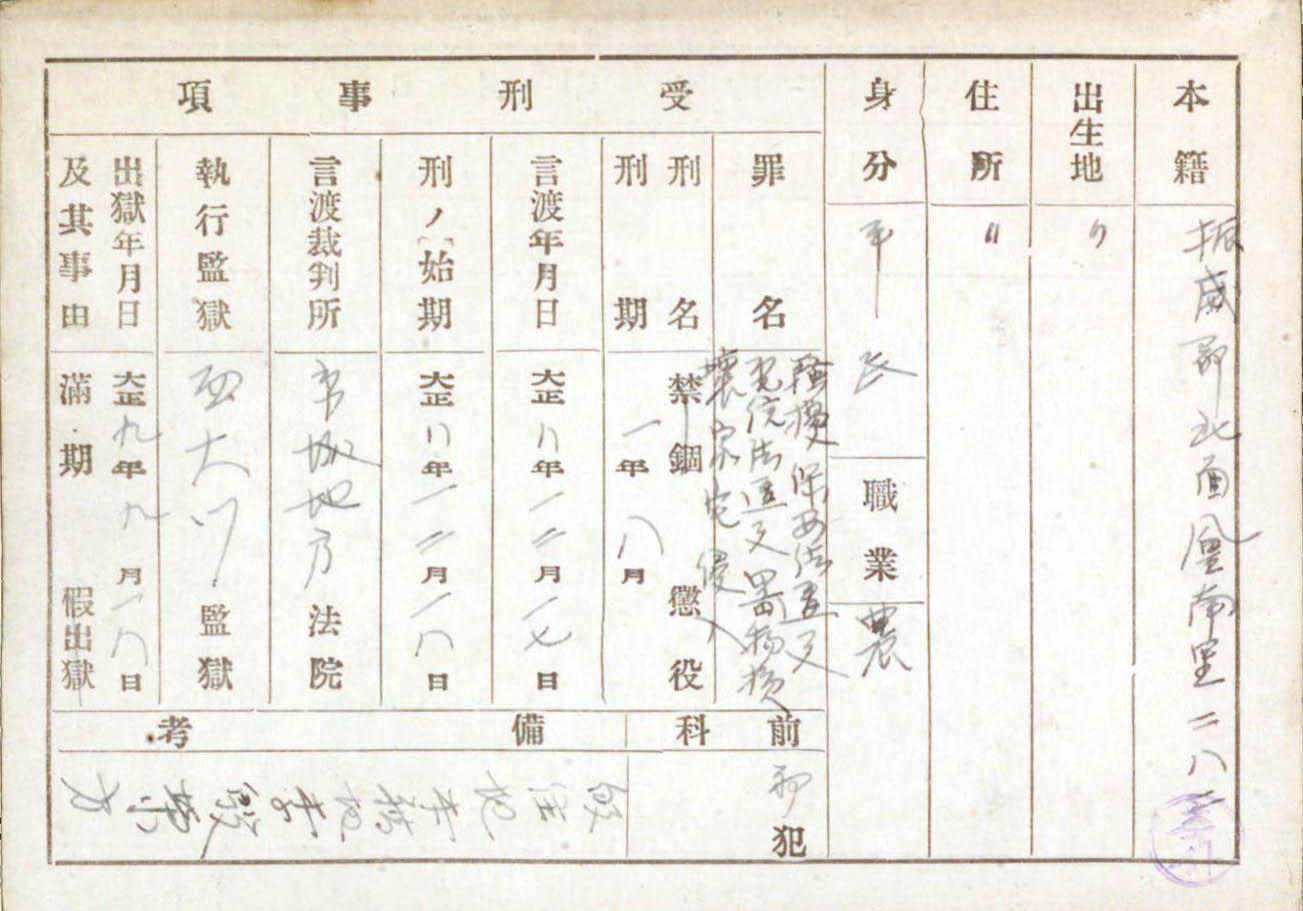 本籍 振威郡北面鳳南里二八二
出生地 〃
住所 〃
身分 平民
職業 農
受刑事項
罪名 騷擾 保安法違反
出版法違反 器物損
壞 家宅侵入
刑名 禁錮 懲役
刑期 一年八月
言渡年月日 大正八年一二月一七日
刑ノ始期 大正八年一二月一八日
言渡裁判所 京城地方法院
執行監獄 西大門監獄
出獄年月日 大正九年九月一八日
及其事由 滿期 假出獄
前科 初犯
備考